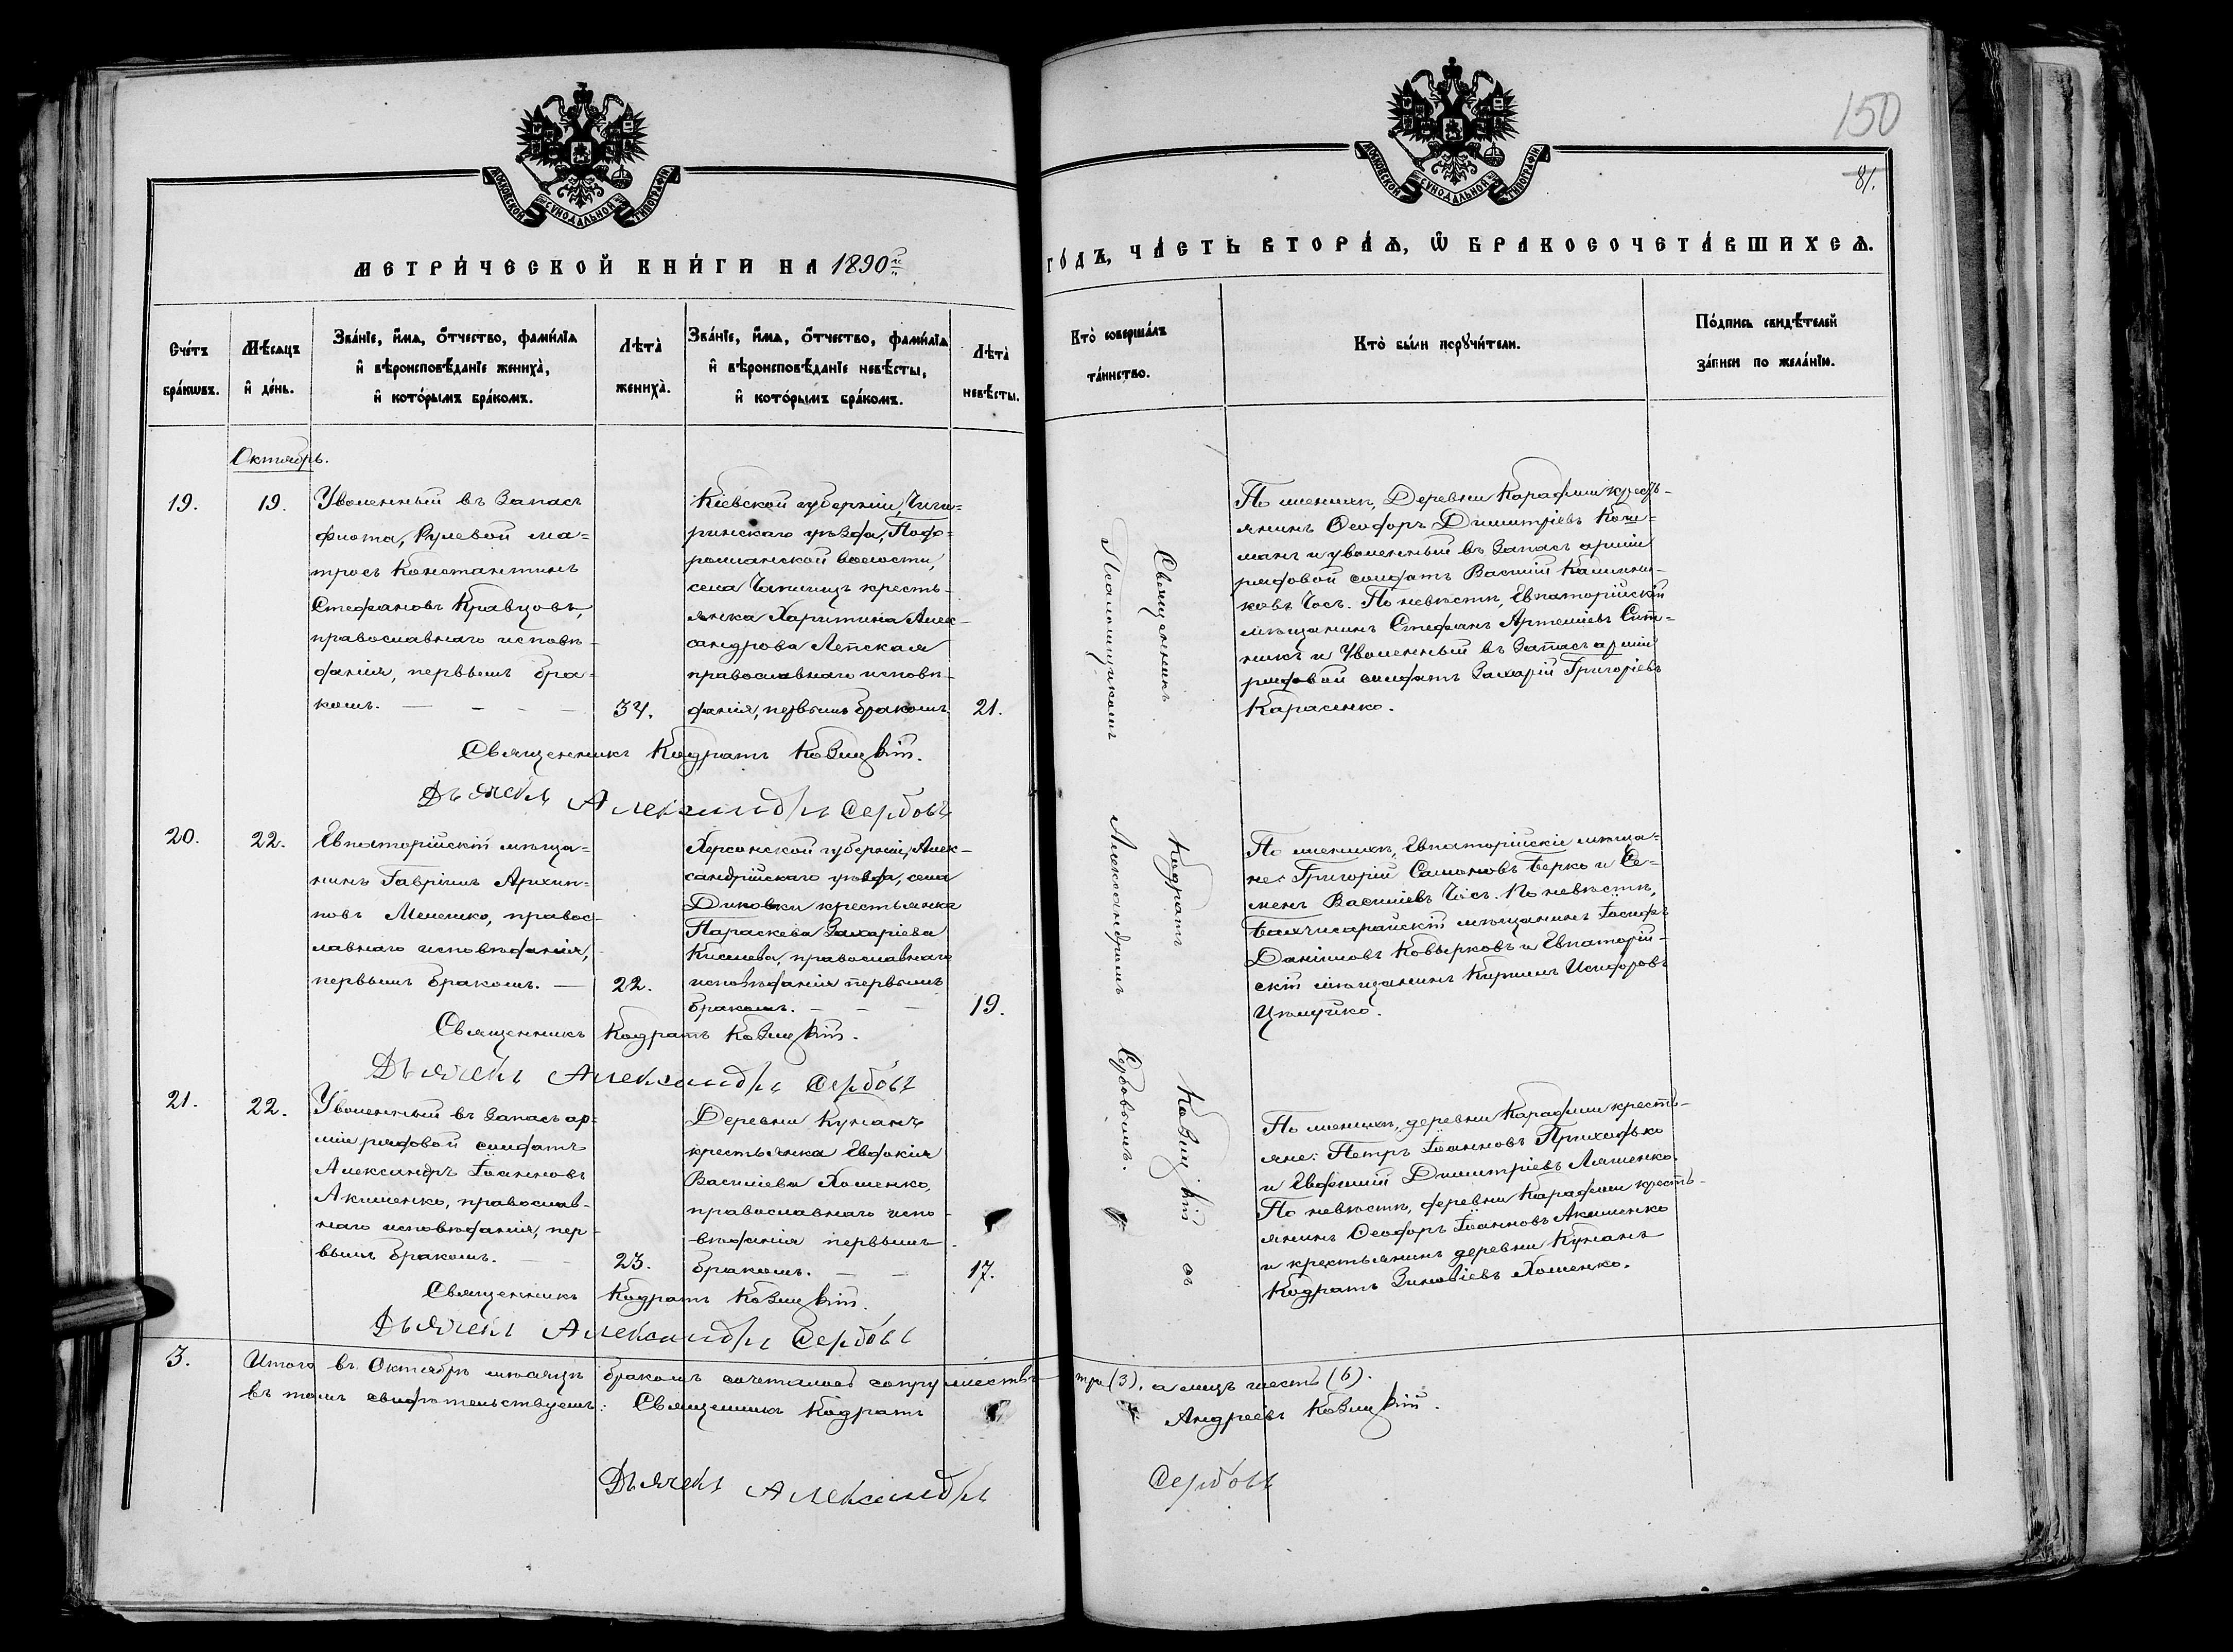 150
81.
МОСКОВСКОЙ СѴНОДАЛЬНОЙ ТИПОГРАФІИ
МОСКОВСКОЙ СѴНОДАЛЬНОЙ ТИПОГРАФІИ
МЕТРИ́ЧЕСКОЙ КНИ́ГИ НА 1890й
ГО́ДЪ, ЧА́СТЬ ВТОРА́Ѧ, Ѡ БРАКОСОЧЕТА́ВШИХСѦ.
Сче́тъ
бра́кѡвъ.
Мѣ́сѧцъ
и҆ де́нь.
Зва́нїе, и҆́мѧ, ѻ҆́тчество, фами́лїѧ
и҆ вѣроисповѣ́данїе жениха̀,
и҆ кото́рымъ бра́комъ.
Лѣта̀
жениха̀.
Зва́нїе, и҆́мѧ, ѻ҆́тчество, фами́лїѧ
и҆ вѣроисповѣ́данїе невѣ́сты,
и҆ кото́рымъ бра́комъ.
Лѣта̀
невѣ́сты.
Кто̀ соверша́лъ
та́инство.
Кто̀ бы́ли порꙋчи́тели.
По́дпись свидѣ́телей
за́писи по жела́нїю.
Октябрь.
19.
19.
Уволенный въ запасъ
флота, Рулевой ма-
тросъ Константинъ
Стефановъ Кравцовъ,
православнаго исповѣ-
данія, первымъ бра-
комъ.
34.
Кіевской губерніи, Чиги-
ринскаго уѣзда, Подо-
рошанской волости,
села Чапинцъ кресть-
янка Харитина Алек-
сандрова Лепская
православнаго исповѣ-
данія, первымъ бракомъ.
21.
По женихѣ, Деревни Карафши кресть-
янинъ Ѳеодоръ Димитріевъ Кош-
манъ и уволенный въ запасъ арміи
рядовой солдатъ Василій Калинни-
ковъ Чосъ. По невѣстѣ, Евпаторійскій
мѣщанинъ Стефанъ Артеміевъ Сит-
никъ и Уволенный въ Запасъ арміи
рядовой солдатъ Захарій Григоріевъ
Карасенко.
Священникъ Кодратъ Козицкій.
Дьячекъ Александръ Сербовъ
20.
22.
Евпаторійскій мѣща-
нинъ Гавріилъ Архип-
повъ Мелешко, правос-
лавнаго исповѣданія,
первымъ бракомъ.
22.
Херсонской губерніи, Алек-
сандрійскаго уѣзда, села
Диковки крестьянка
Параскева Захаріева
Киселева, православнаго
исповѣданія первымъ
бракомъ.
19.
По женихѣ, Евпаторійскіе мѣща-
не: Григорій Самоновъ Берко и Се-
менъ Василіевъ Чосъ. По невѣстѣ,
Бахчисарайскій мѣщанинъ Іосифъ
Даніиловъ Ковырковъ и Евпаторій-
скій мѣщанинъ Кириллъ Исидоровъ
Цюцюйко.
Священникъ Кодратъ Козицкій.
Дьячекъ Александръ Сербовъ
21.
22.
Уволенный въ Запасъ ар-
міи рядовой солдатъ
Александръ Іоанновъ
Акименко, православ-
наго исповѣданія, пер-
вымъ бракомъ.
23.
Деревни Кунанъ
крестьянка Евдокія
Василіева Хоменко,
православнаго испо-
вѣданія первымъ
бракомъ.
17.
По женихѣ, деревни Карафши кресть-
яне: Петръ Іоанновъ Приходько
и Евфимій Димитріевъ Ляшенко.
По невѣстѣ, деревни Карафши кресть-
янинъ Ѳеодоръ Іоанновъ Акименко
и крестьянинъ деревни Кунанъ
Кодратъ Зиновіевъ Хоменко.
Священникъ Кодратъ Козицкій.
Дьячекъ Александръ Сербовъ
Священникъ Кодратъ Козицкій съ
Псаломщикомъ Александромъ Сербовымъ.
3.
Итого въ Октябрѣ мѣсяцѣ бракомъ сочеталось супружествъ три (3), а лицъ шесть (6).
Въ томъ свидѣтельствуемъ: Священникъ Кодратъ Андреевъ Козицкій.
Дьячекъ Александръ Сербовъ